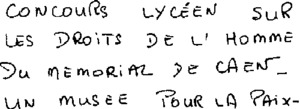 CONCOURS LYCÉEN SUR
LES DROITS DE L'HOMME
DU MEMORIAL DE CAEN_
UN MUSEE POUR LA PAIX-